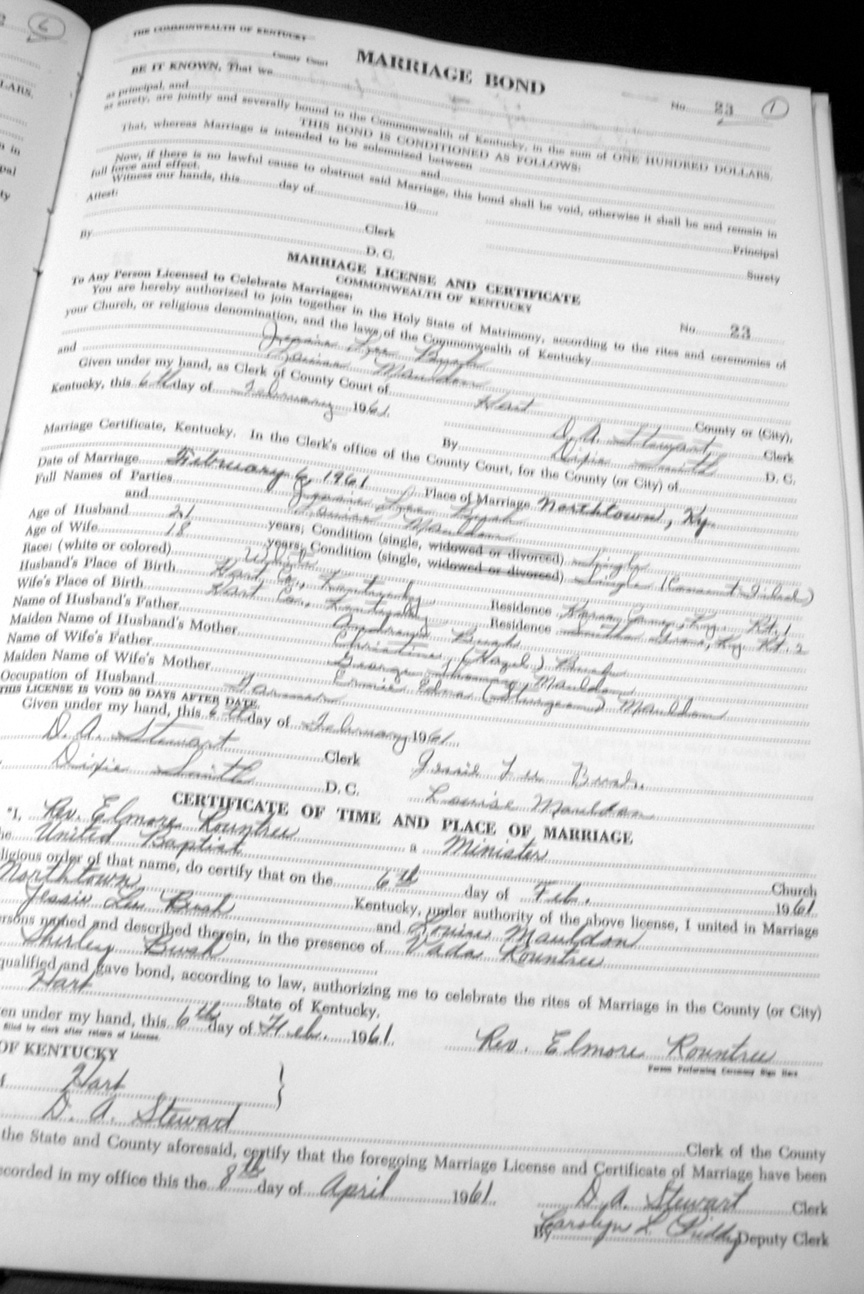 6
LARS.
THE COMMONWEALTH OF KENTUCKY
County Court
MARRIAGE BOND
No. 23 1
BE IT KNOWN, That we
as principal, and
as surety, are jointly and severally bound to the Commonwealth of Kentucky, in the sum of ONE HUNDRED DOLLARS.
THIS BOND IS CONDITIONED AS FOLLOWS:
That, whereas Marriage is intended to be solemnized between
and
Now, if there is no lawful cause to obstruct said Marriage, this bond shall be void, otherwise it shall be and remain in
full force and effect.
Witness our hands, this day of 19
Attest:
Principal
Clerk
Surety
By D. C.
MARRIAGE LICENSE AND CERTIFICATE
COMMONWEALTH OF KENTUCKY
No. 23
To Any Person Licensed to Celebrate Marriages:
You are hereby authorized to join together in the Holy State of Matrimony, according to the rites and ceremonies of
your Church, or religious denomination, and the laws of the Commonwealth of Kentucky
Jessie Lee Bush
and Louise Mauldon
Given under my hand, as Clerk of County Court of Hart County or (City),
Kentucky, this 6th day of February 1961.
D. A. Stewart Clerk
By Dixie Smith D. C.
Marriage Certificate, Kentucky. In the Clerk's office of the County Court, for the County (or City) of
Date of Marriage February 6, 1961 Place of Marriage Northtown, Ky.
Full Names of Parties Jessie Lee Bush
and Louise Mauldon
Age of Husband 21 years; Condition (single, widowed or divorced) Single
Age of Wife 18 years; Condition (single, widowed or divorced) Single (Consent Filed)
Race: (white or colored) White
Husband's Place of Birth Hart Co., Kentucky Residence Ky. Rt. 1
Wife's Place of Birth Hart Co., Kentucky Residence Ky. Rt. 2
Name of Husband's Father Bush
Maiden Name of Husband's Mother Christine (Hazel) Bush
Name of Wife's Father George Mauldon
Maiden Name of Wife's Mother Edna Mauldon
Occupation of Husband Farmer
THIS LICENSE IS VOID 30 DAYS AFTER DATE.
Given under my hand, this 6th day of February 1961.
D. A. Stewart Clerk Jessie Lee Bush.
Dixie Smith D. C. Louise Mauldon
CERTIFICATE OF TIME AND PLACE OF MARRIAGE
"I, Rev. Elmore Rountree a Minister
United Baptist Church
ligious order of that name, do certify that on the 6th day of Feb. 1961
Northtown Kentucky, under authority of the above license, I united in Marriage
Jessie Lee Bush and Louise Mauldon
rsons named and described therein, in the presence of Vada Rountree
Shirley Bush
qualified and gave bond, according to law, authorizing me to celebrate the rites of Marriage in the County (or City)
Hart State of Kentucky.
en under my hand, this 6th day of Feb. 1961.
filed by clerk after return of License. Rev. Elmore Rountree
Person Performing Ceremony Sign Here
OF KENTUCKY
f Hart
D. A. Steward Clerk of the County
the State and County aforesaid, certify that the foregoing Marriage License and Certificate of Marriage have been
ecorded in my office this the 8th day of April 1961. D. A. Stewart Clerk
By Carolyn L Priddy Deputy Clerk